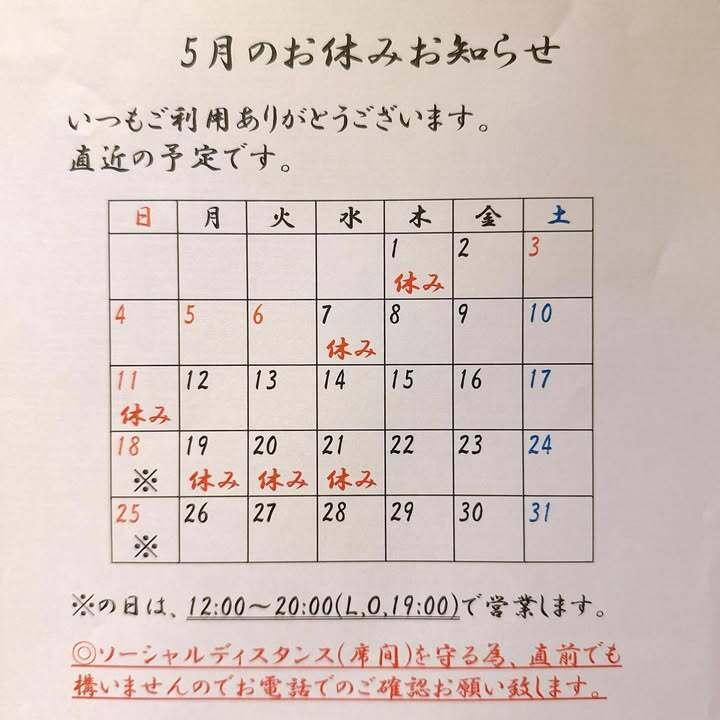 5月のお休みお知らせ
いつもご利用ありがとうございます。
直近の予定です。
日 月 火 水 木 金 土
1 2 3
休み
4 5 6 7 8 9 10
休み
11 12 13 14 15 16 17
休み
18 19 20 21 22 23 24
※ 休み 休み 休み
25 26 27 28 29 30 31
※
※の日は、12:00～20:00(L,O,19:00)で営業します。
◎ソーシャルディスタンス(席間)を守る為、直前でも
構いませんのでお電話でのご確認お願い致します。